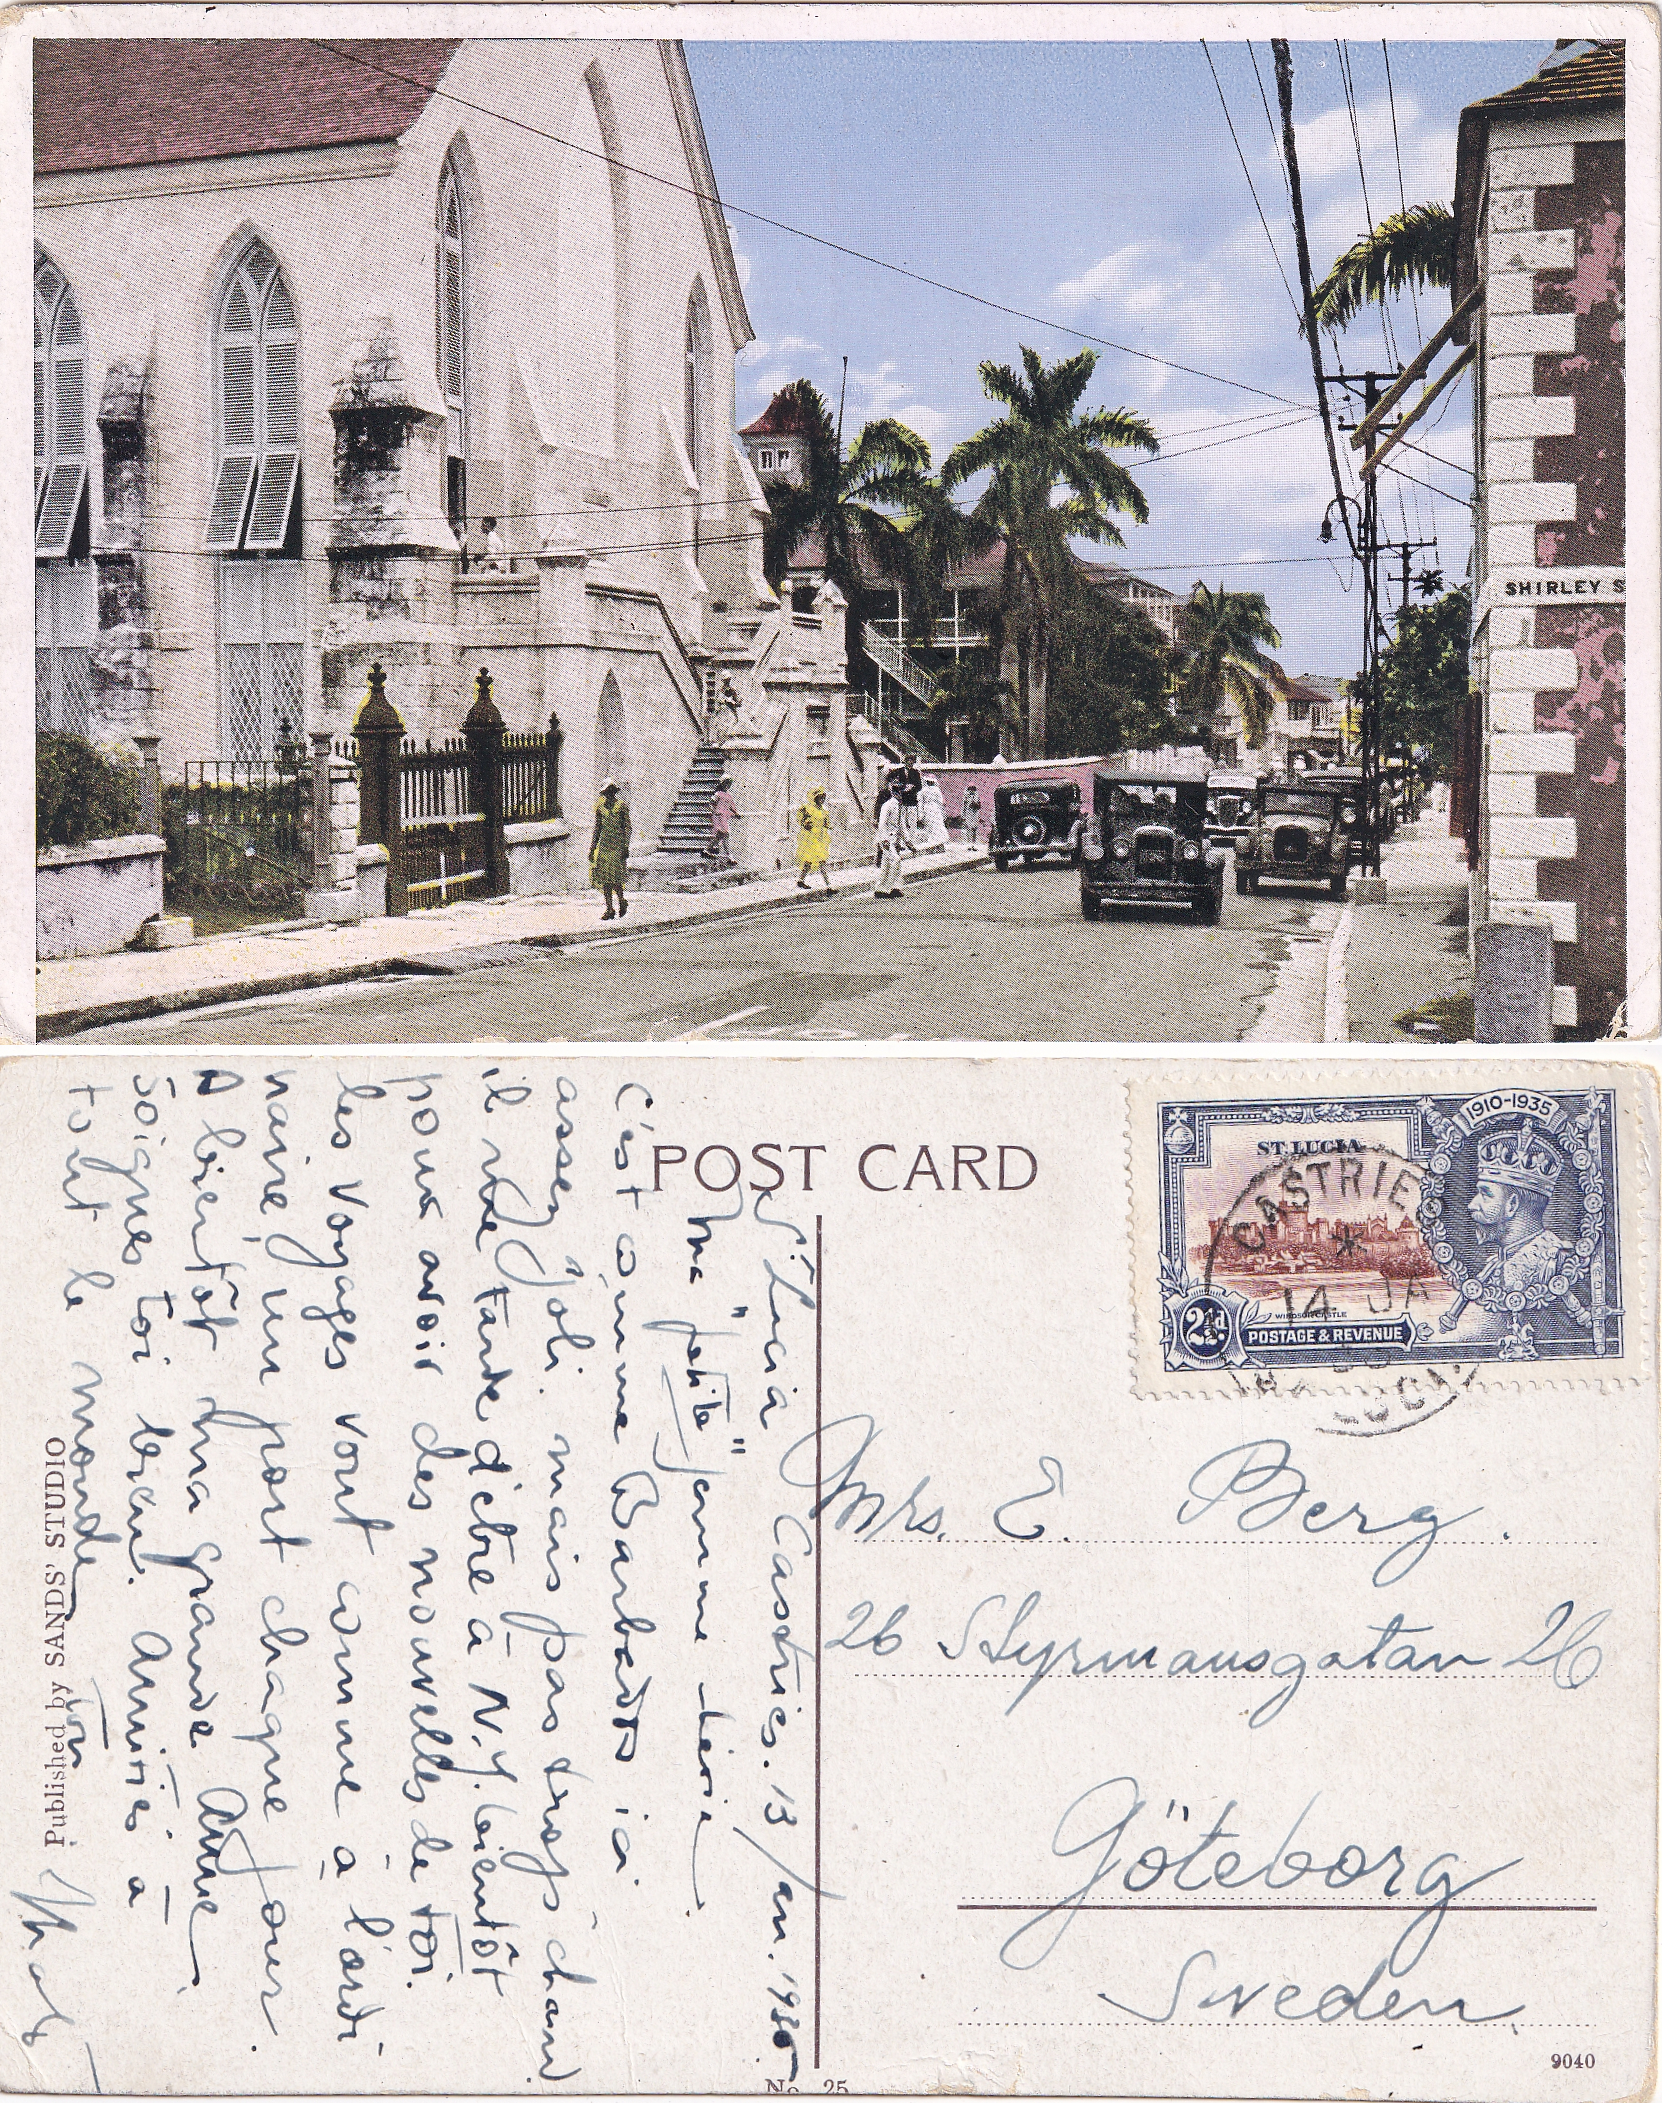 SHIRLEY S
POST CARD
1910-1935
ST. LUCIA
CASTRIE
14 JA
WINDSOR CASTLE
2½d
POSTAGE & REVENUE
Mrs. E. Berg.
26 Styrmansgatan 26
Göteborg
Sweden.
9040
No 25
Published by SANDS' STUDIO
St Lucia Castries. 13/Jan. 193
Ma "petite" femme chérie.
C'est comme Barbados ici
assez joli. mais pas trop chaud.
il me tarde d'être à N.Y. bientôt
pour avoir des nouvelles de toi.
les voyages vont comme à l'ordi
naire, un port chaque jour.
A bientôt ma grande Amie,
soignes toi bien. Amitiés à
tout le monde
Ton